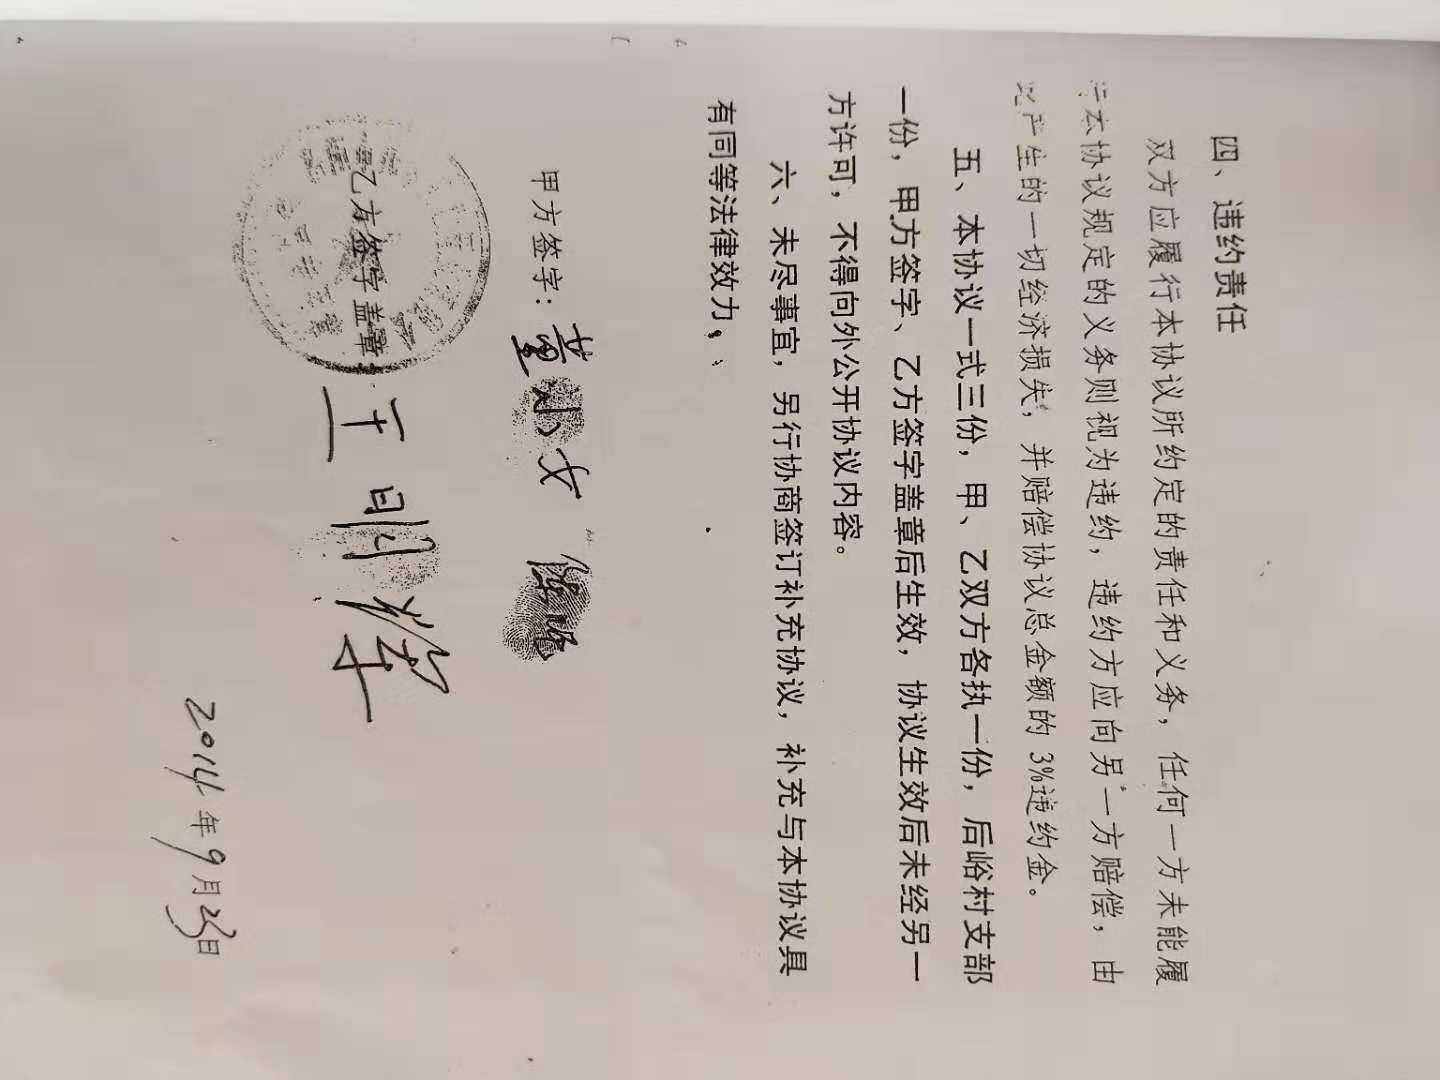 四、违约责任
双方应履行本协议所约定的责任和义务，任何一方未能履
行本协议规定的义务则视为违约，违约方应向另一方赔偿，由
此产生的一切经济损失，并赔偿协议总金额的3%违约金。
五、本协议一式三份，甲、乙双方各执一份，后峪村支部
一份，甲方签字、乙方签字盖章后生效，协议生效后未经另一
方许可，不得向外公开协议内容。
六、未尽事宜，另行协商签订补充协议，补充与本协议具
有同等法律效力，
甲方签字：董小女
乙方签字盖章：王明
2014年9月23日